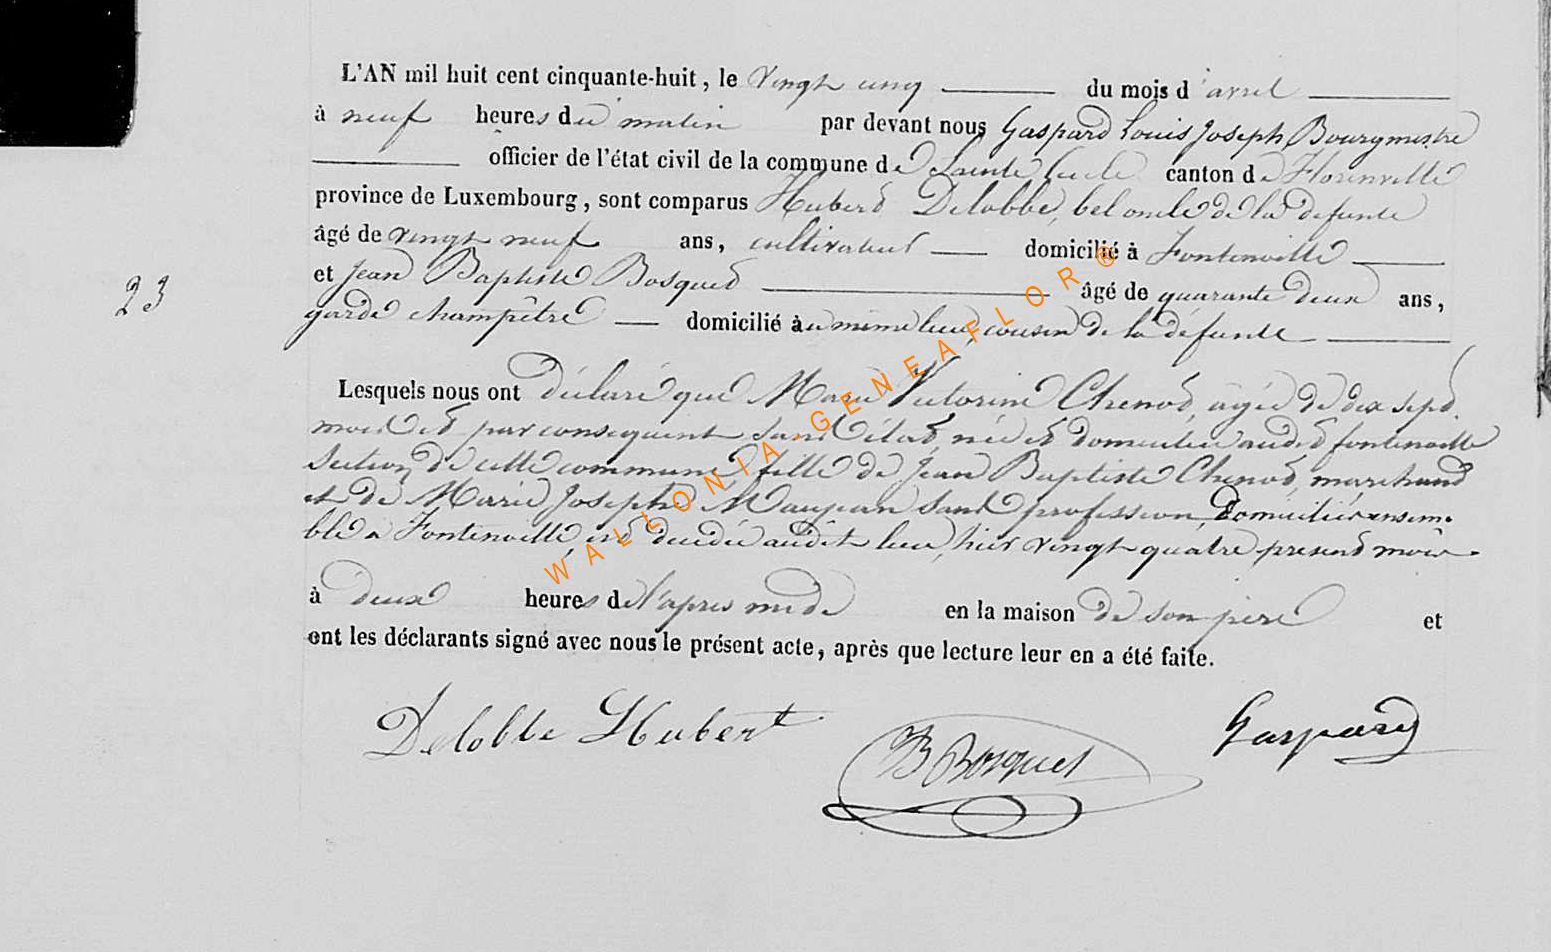 L'AN mil huit cent cinquante-huit, le vingt cinq du mois d'avril
à neuf heures du matin par devant nous Gaspard Louis Joseph Bourgmestre
officier de l'état civil de la commune de Sainte Cécile canton de Florenville
province de Luxembourg, sont comparus Hubert Delobbe, bel oncle de la defunte
âgé de vingt neuf ans, cultivateur domicilié à Fontenoille
et Jean Baptiste Bosquet âgé de quarante deux ans,
23
garde champêtre domicilié au même lieu, cousin de la défunte
Lesquels nous ont déclaré que Marie Victorine Chenot, agée de dix sept
mois et par consequent sans état, née et domiciliée audit fontenoille
section de cette commune, fille de Jean Baptiste Chenot, marchand
et de Marie Josephe Maujean sans profession, domiciliés ensem-
ble à Fontenoille, est decedée audit lieu, hier vingt quatre present mois
à deux heures de l'apres midi en la maison de son père et
ont les déclarants signé avec nous le présent acte, après que lecture leur en a été faite.
Delobbe Hubert
JB Bosquet
Gaspard
WALLONIA-GENEAFLOR®